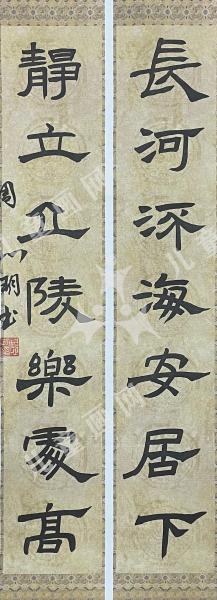 長河流海安居下
靜立丘陵樂處髙
周 明书